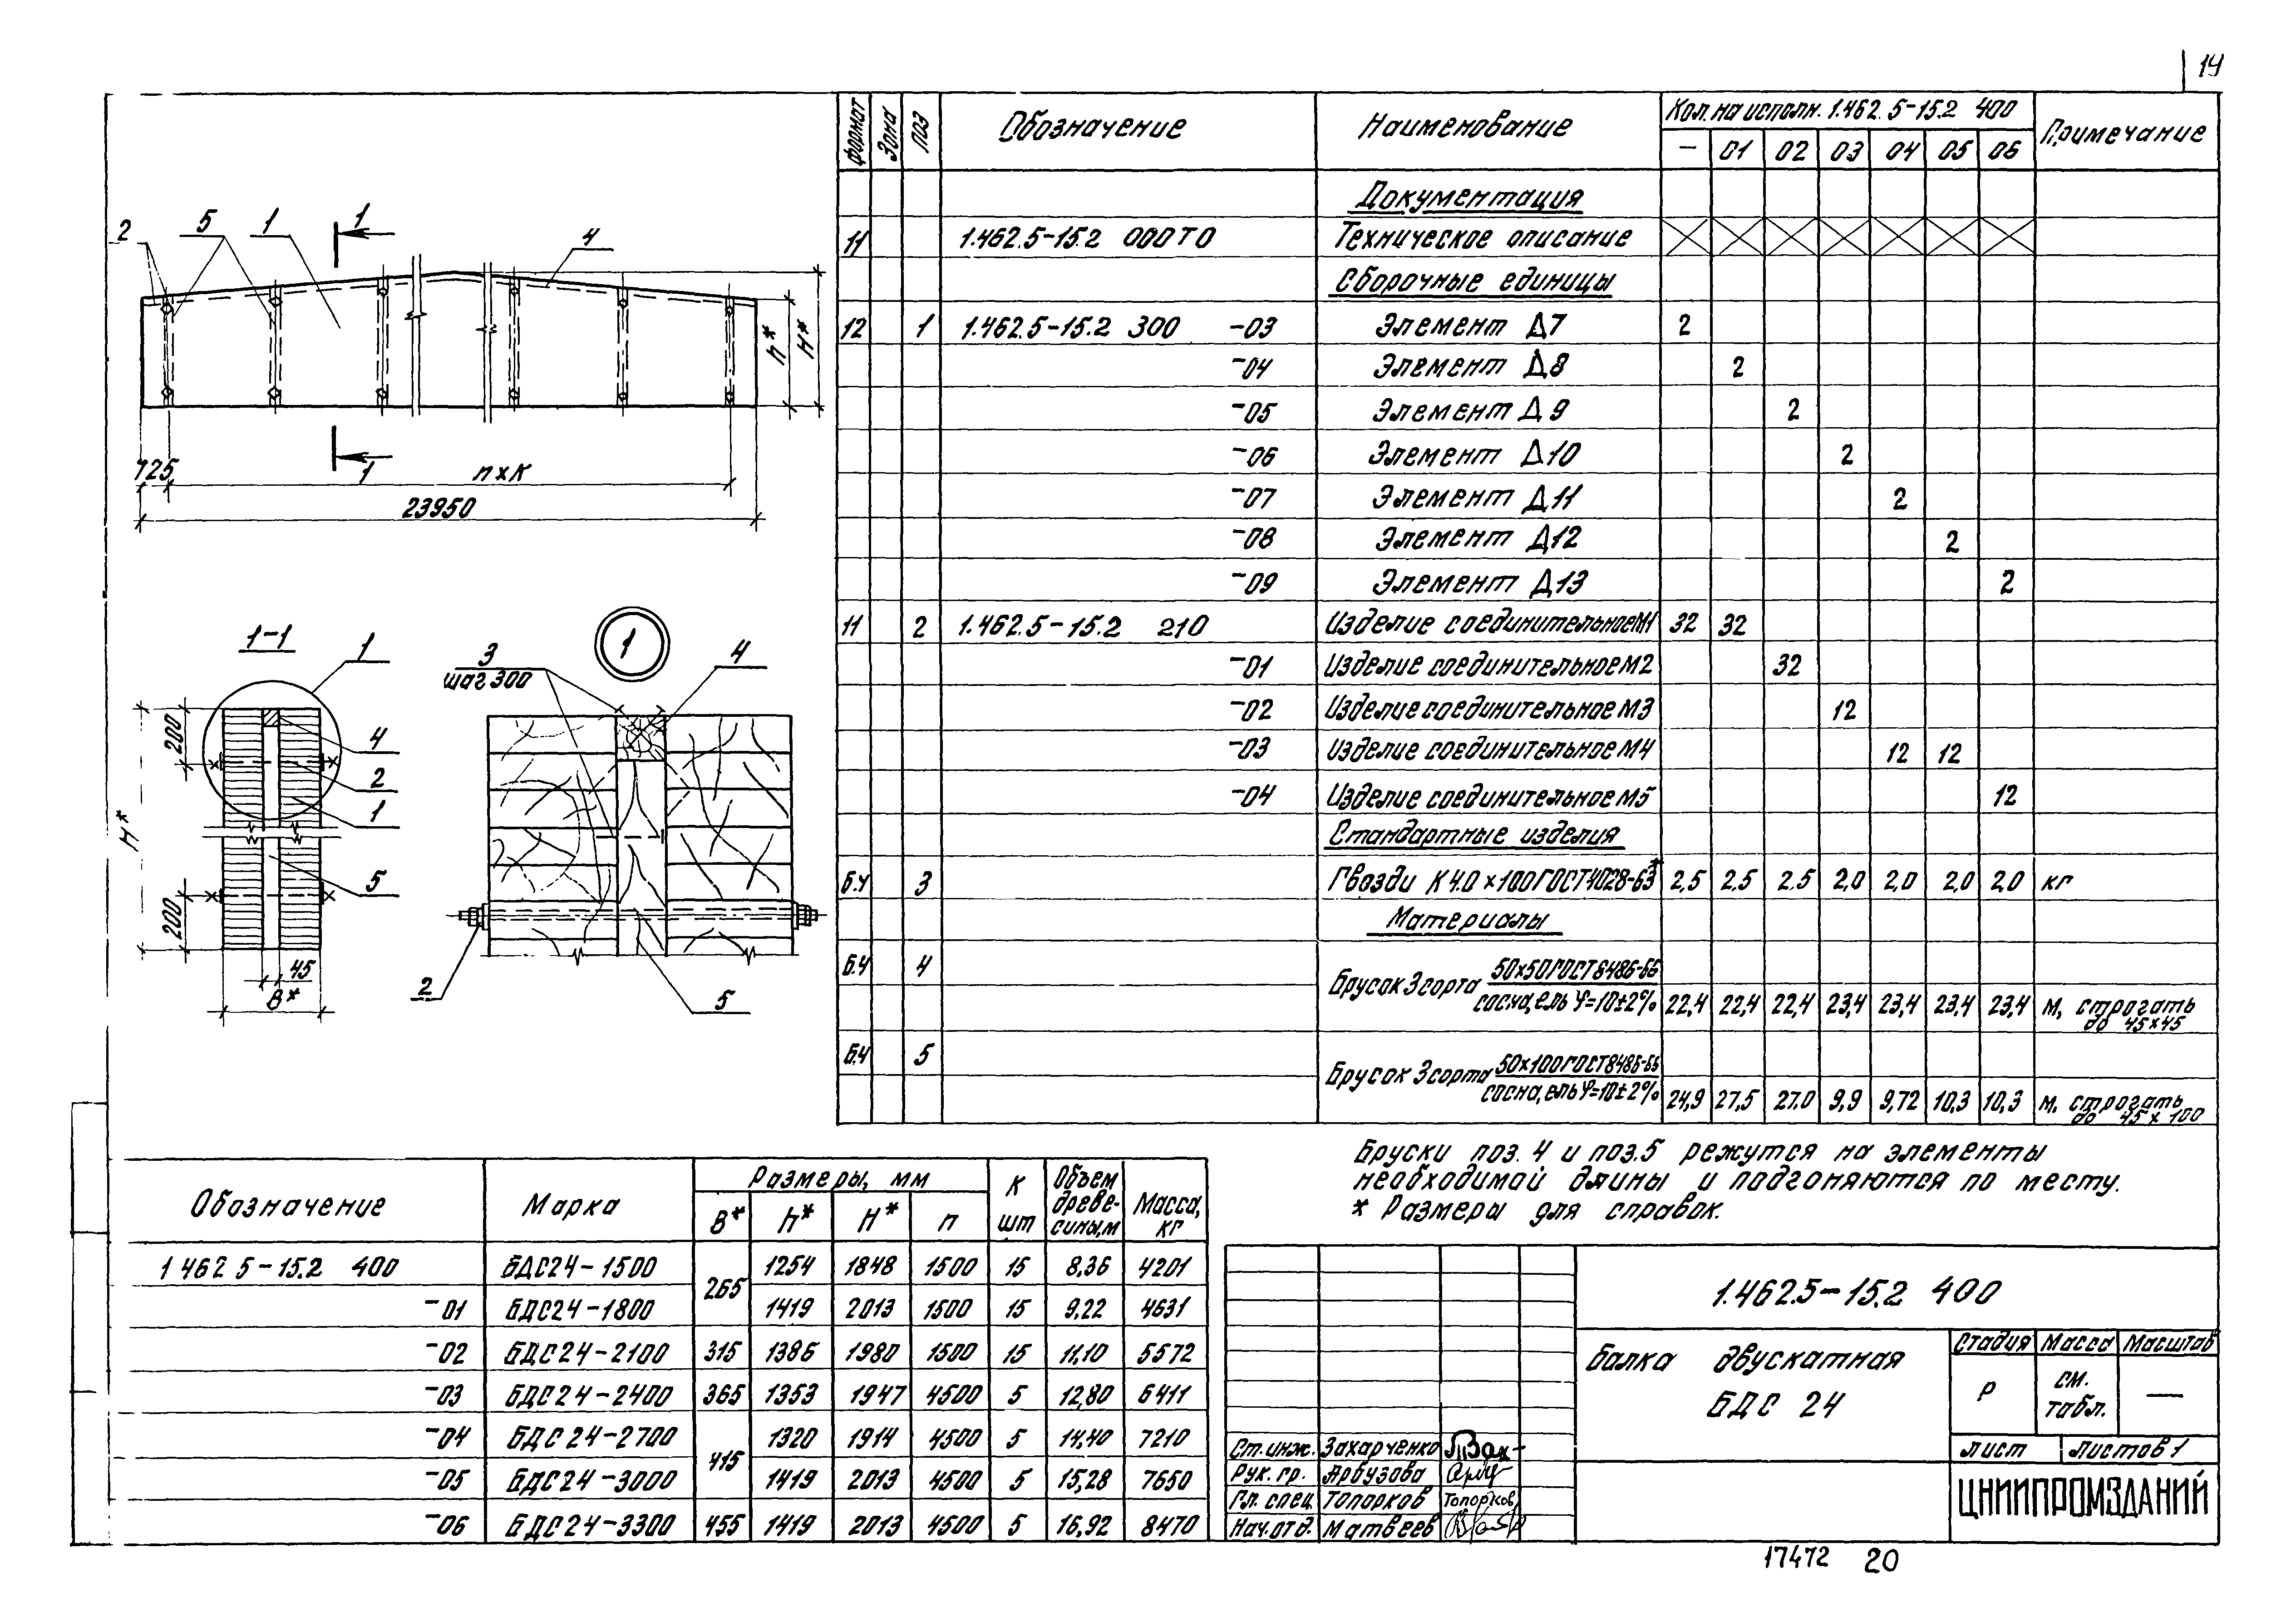 14
Формат Зона Поз Обозначение Наименование Кол. на исполн. 1.462.5-15.2 400 Примечание
- 01 02 03 04 05 06
Документация
11 1.462.5-15.2 000ТО Техническое описание
Сборочные единицы
12 1 1.462.5-15.2 300 -03 Элемент Д7 2
-04 Элемент Д8 2
-05 Элемент Д9 2
-06 Элемент Д10 2
-07 Элемент Д11 2
-08 Элемент Д12 2
-09 Элемент Д13 2
11 2 1.462.5-15.2 210 Изделие соединительное М1 32 32
-01 Изделие соединительное М2 32
-02 Изделие соединительное М3 12
-03 Изделие соединительное М4 12 12
-04 Изделие соединительное М5 12
Стандартные изделия
Б.Ч 3 Гвозди К4.0×100 ГОСТ 4028-63* 2,5 2.5 2.5 2,0 2,0 2,0 2,0 кг
Материалы
Б.Ч 4 Брусок 3 сорта 50×50 ГОСТ 8486-66
сосна, ель φ=10±2% 22,4 22,4 22,4 23,4 23,4 23,4 23,4 м, строгать
до 45×45
Б.Ч 5 Брусок 3 сорта 50×100 ГОСТ 8486-66
сосна, ель φ=10±2% 24,9 27,5 27.0 9,9 9,72 10,3 10,3 м. строгать
до 45×100
2 5 1 1 4
h* H*
725 1 n×К
23950
1-1 1
200 4 2 1
H* 5
200 45
B*
1
3 4
шаг 300
2 5
Бруски поз. 4 и поз.5 режутся на элементы
необходимой длины и подгоняются по месту.
* Размеры для справок.
Обозначение Марка Размеры, мм К шт Объем древе-сины,м Масса, кг
B* h* H* n
1 462 5-15.2 400 БДС24-1500 265 1254 1848 1500 15 8,36 4201
-01 БДС24-1800 1419 2013 1500 15 9,22 4631
-02 БДС24-2100 315 1386 1980 1500 15 11,10 5572
-03 БДС24-2400 365 1353 1947 4500 5 12,80 6411
-04 БДС24-2700 415 1320 1914 4500 5 14,40 7210
-05 БДС24-3000 1419 2013 4500 5 15,28 7650
-06 БДС24-3300 455 1419 2013 4500 5 16,92 8470
1.462.5-15.2 400
Балка двускатная
БДС 24
Стадия Масса Масштаб
Р см. табл. —
Лист Листов 1
ЦНИИПРОМЗДАНИЙ
Ст. инж. Захарченко
Рук. гр. Арбузова
Гл. спец. Топорков Топорков
Нач. отд. Матвеев
17472 20